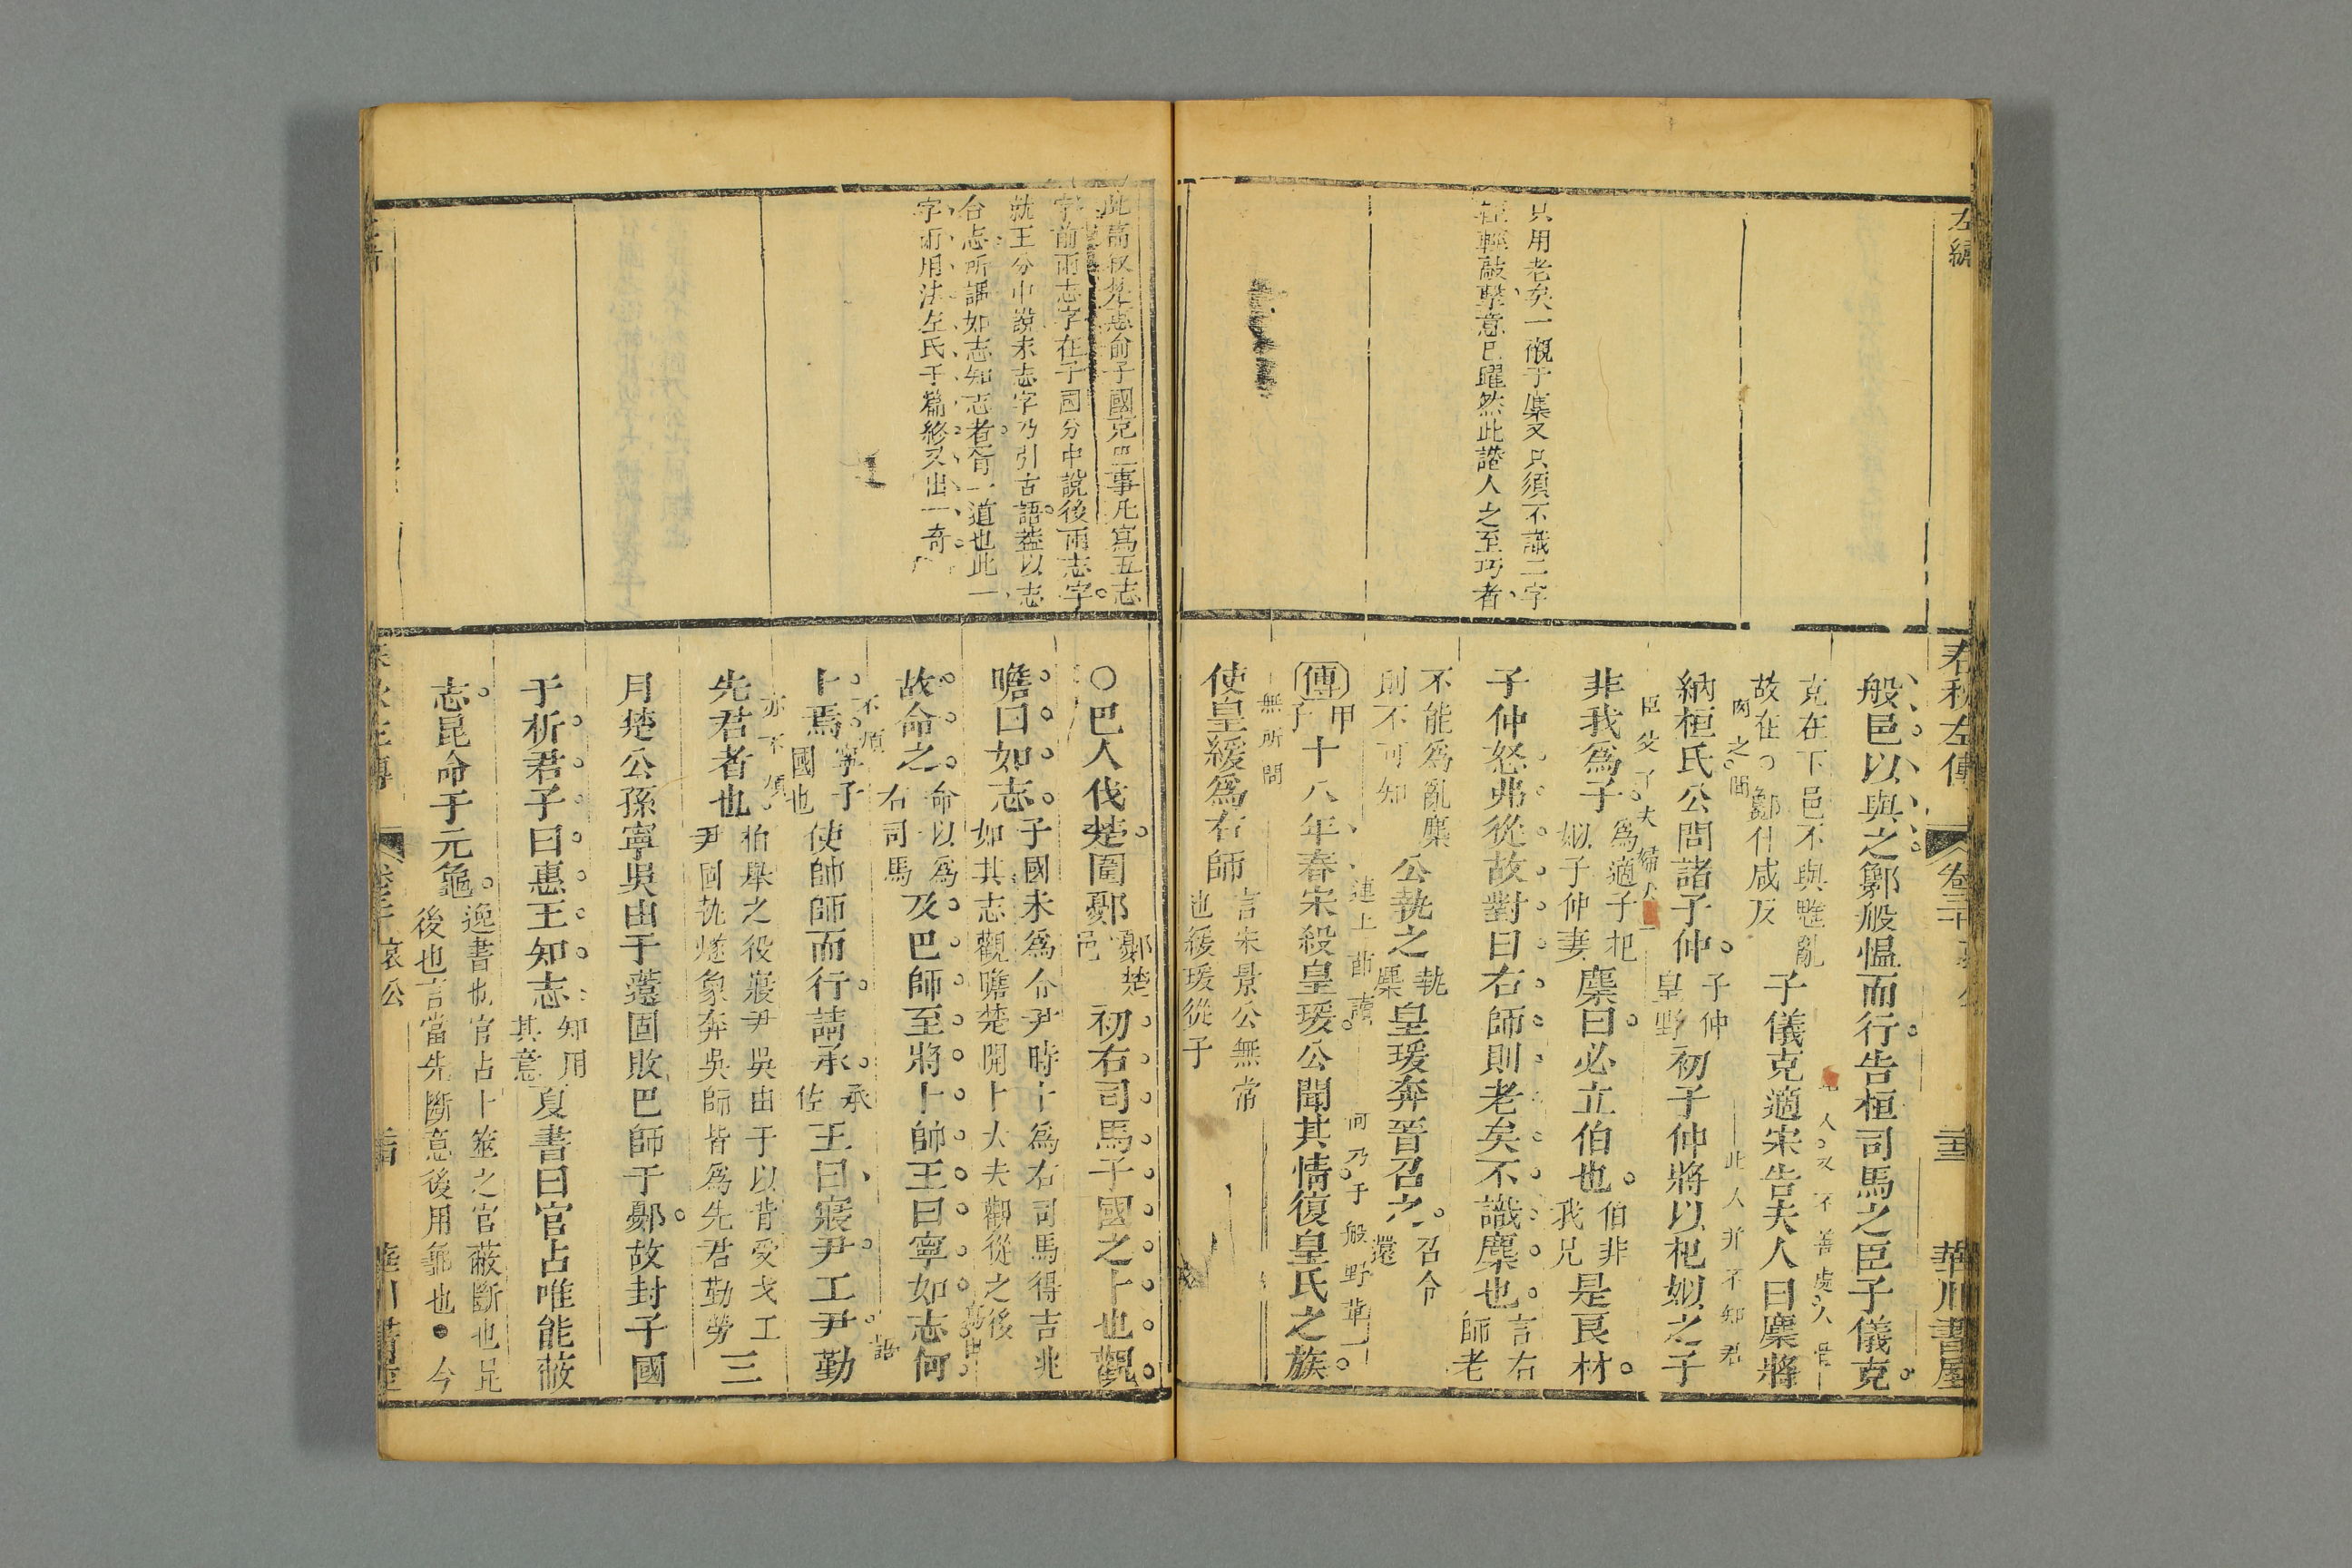 左繡
春秋左傳
華川書屋
只用老矣一襯于麇又只須不識二字
輕輕敲擊意已曜然此譖人之至巧者
般邑以與之鄭般慍而行告桓司馬之臣子儀克
克在下邑不與魋亂
故在
子儀克適宋告夫人曰麇將
納桓氏公問諸子仲
子仲
皇野
初子仲將以杞姒之子
非我爲子
爲適子杞
姒子仲妻
麇曰必立伯也
伯非
我兄
是良材
子仲怒弗從故對曰右師則老矣不識麇也
言右
師老
不能爲亂麇
則不可知
公執之
執
麇
皇瑗奔晉召之
召令
還
傳
甲
子
十八年春宋殺皇瑗公聞其情復皇氏之族
連上節讀
何乃于般野革一
使皇緩爲右師
言宋景公無常
也緩瑗從子
無所問
此篇叙楚惠命子國克巴事凡寫五志
字前兩志字在子國分中說後兩志字
就王分中說末志字乃引古語蓋以志
合志所謂如志知志者有一道也此一
字兩用法左氏千篇終又出一奇
○巴人伐楚圍鄾
鄾楚
邑
初右司馬子國之卜也觀
瞻曰如志
子國未爲令尹時卜爲右司馬得吉兆
如其志觀瞻楚開卜大夫觀從之後
故命之
命以爲
右司馬
及巴師至將卜帥王曰寧如志何
卜焉
寧子
國也
使帥師而行請承
承
佐
王曰寢尹工尹勤
先君者也
柏舉之役寢尹吳由于以背受戈工
尹固執燧象奔吳師皆爲先君勤勞
三
月楚公孫寧吳由于薳固敗巴師于鄾故封子國
于析君子曰惠王知志
知用
其意
夏書曰官占唯能蔽
志昆命于元龜
逸書也官占卜筮之官蔽斷也昆
後也言當先斷意後用龜也●今
哀公